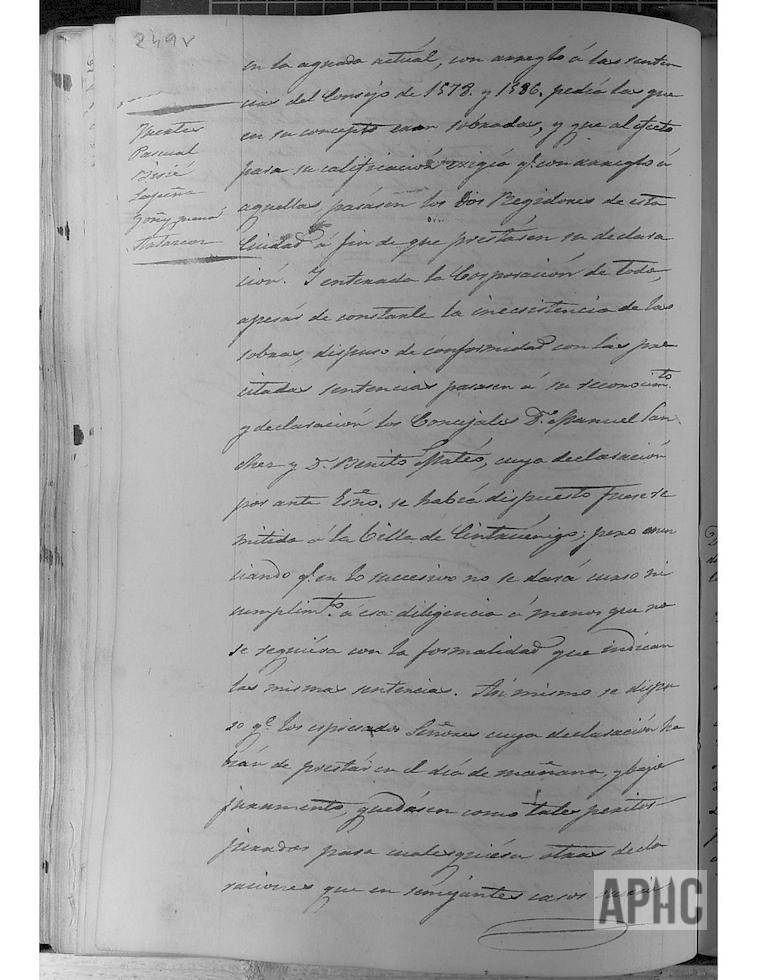 249v
Fuentes
Pascual
Bisié
Lapeña
Goñi, quema
Antaron
en la aguada actuál, con arreglo á las senten
cias del Consejo de 1578. y 1586. pedia las que
en su concepto eran sobradas, y que al efecto
para su calificación exigia q.e con arreglo á
aquellas pasásen los Dos Regidores de esta
Ciudad á fin de que prestásen su declara
ción. Y enterada la Corporación de todo,
apesár de constarle la inecsistencia de las
sobras, dispuso de conformidad con las pre
citadas sentencias pasasen á su reconocim.to
y declaración los Concejales D.n Manuel San
chez y D. Benito Matéo, cuya declaración
por ante Esño. se había dispuesto fuese re
mitida á la Villa de Cintruénigo; pero anun
ciando q.e en lo sucesivo no se dará curso ni
cumplim.to á esa diligencia á menos que no
se requiéra con la formalidad que indican
las mismas sentencias. Asi mismo se dispu
so q.e los espresados Señores cuya declaración ha
brán de prestár en el día de mañana, y bajo
juramento, quedásen como tales peritos
jurados para cualesquiéra otras decla
raciones que en semejantes casos
APHC